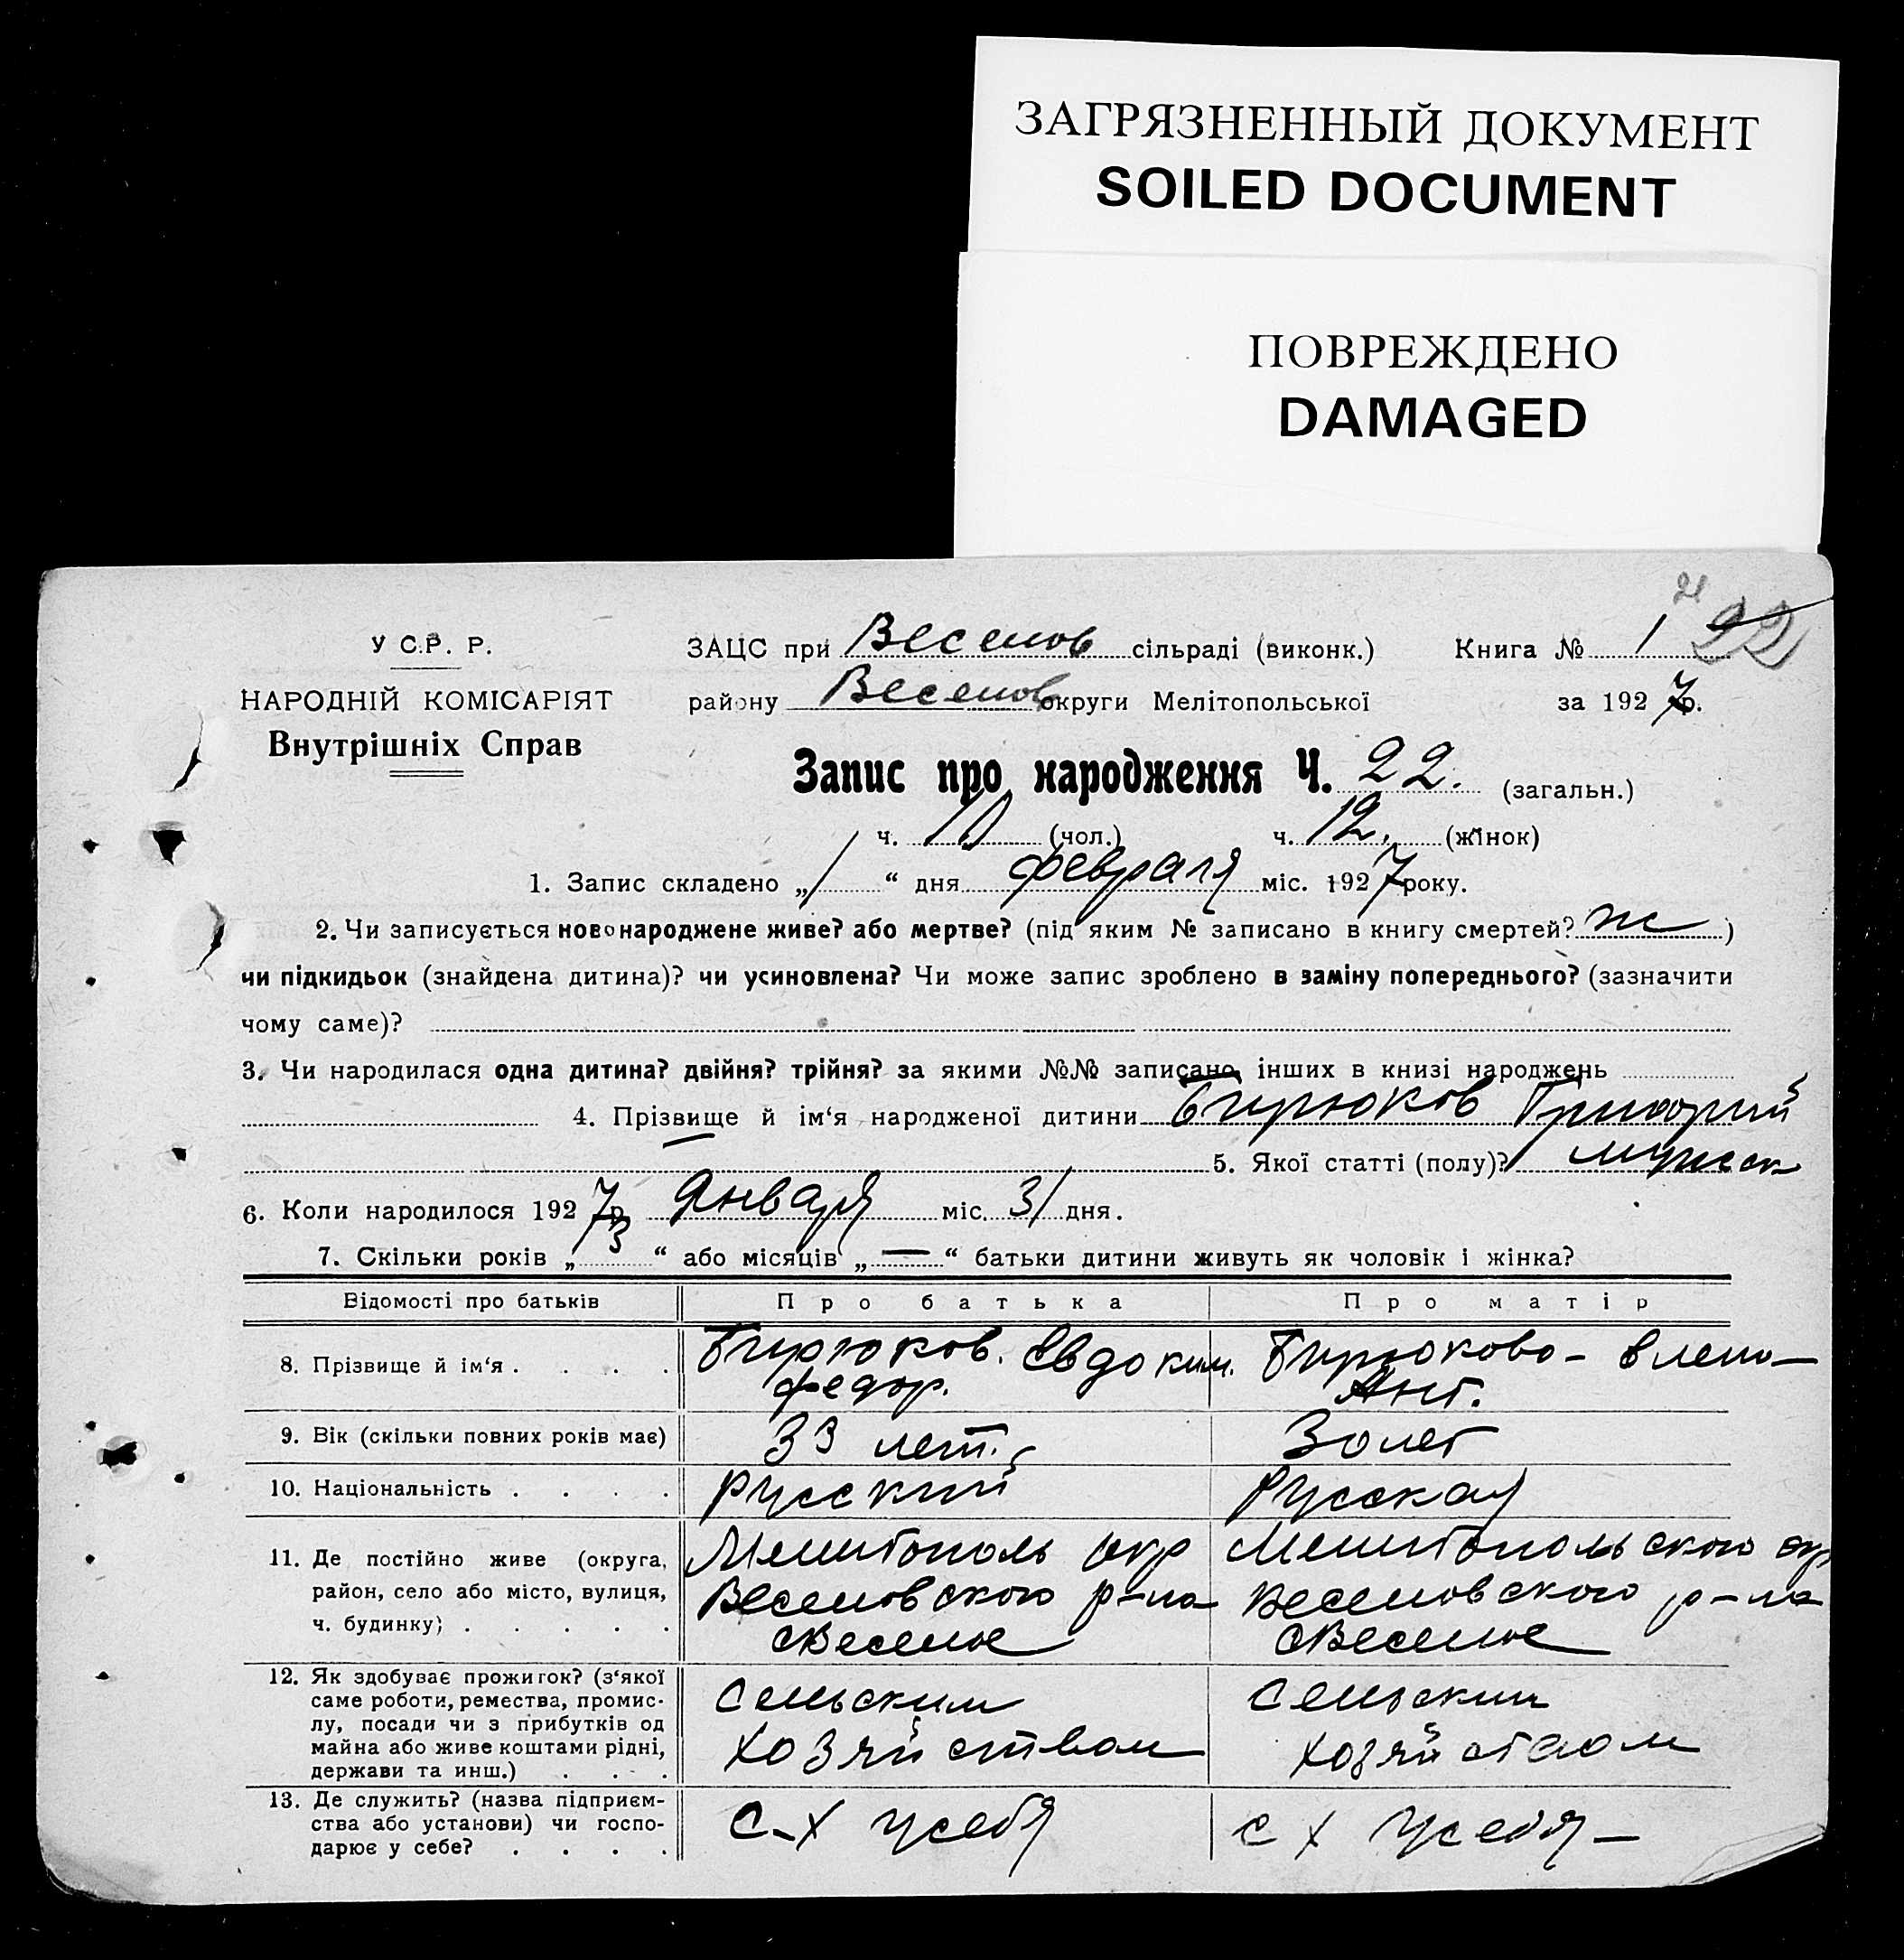 ЗАГРЯЗНЕННЫЙ ДОКУМЕНТ
SOILED DOCUMENT
ПОВРЕЖДЕНО
DAMAGED
21
У С.Р. Р.
ЗАЦС при Веселов сільраді (виконк.) Книга № 1 22
НАРОДНІЙ КОМІСАРІЯТ
району Веселов округи Мелітопольської за 1927 р.
Внутрішніх Справ
Запис про народження Ч. 22. (загальн.)
ч. 10 (чол.) ч. 12. (жінок)
1. Запис складено „1“ дня февраля міс. 1927 року.
2. Чи записується новонароджене живе? або мертве? (під яким № записано в книгу смертей? ж)
чи підкидьок (знайдена дитина)? чи усиновлена? Чи може запис зроблено в заміну попереднього? (зазначити
чому саме)?
3. Чи народилася одна дитина? двійня? трійня? за якими №№ записано інших в книзі народжень
4. Прізвище й ім‘я народженої дитини Бирюков Григорий
5. Якої статті (полу)? мужск
6. Коли народилося 1927 р. Января міс. 31 дня.
7. Скільки років „3“ або місяців „—“ батьки дитини живуть як чоловік і жінка?
Відомості про батьків Про батька Про матір
8. Прізвище й ім‘я . . . . Бирюков. Евдоким. Бирюкова - Елена
Федор. Ант.
9. Вік (скільки повних років має) 33 лет. 30 лет
10. Національність . . . . русский Русская
11. Де постійно живе (округа, Мелитополь окр Мелитопольского окр
район, село або місто, вулиця, Веселовского р-на Веселовского р-на
ч. будинку) . . . . . с Веселое с Веселое
12. Як здобуває прожиток? (з‘якої
саме роботи, ремества, промис- Сельским Сельским
лу, посади чи з прибутків од
майна або живе коштами рідні, хозяйством хозяйством
держави та инш.) . . .
13. Де служить? (назва підприєм-
ства або установи) чи госпо- С-х у себя с х у себя -
дарює у себе? . . . .